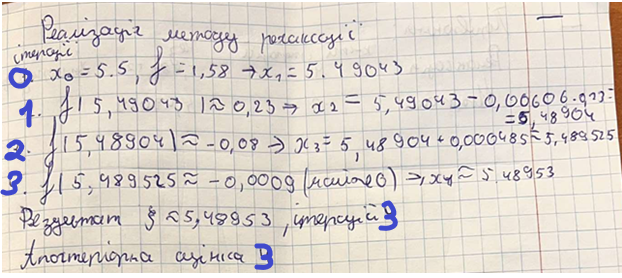 Реалізація методу релаксації
ітерації
0 x₀ = 5.5, f = 1,58 → x₁ = 5.49043
1. f(5,49043) ≈ 0,23 → x₂ = 5,49043 - 0,00606·0,23=
= 5,48904
2. f(5,48904) ≈ -0,08 → x₃ = 5,48904 + 0,000485 ≈ 5,489525
3. f(5,489525 ≈ -0,0009 (майже 0) → x₄ ≈ 5,48953
Результат ξ ≈ 5,48953, ітерацій 3
Апостеріорна оцінка 3